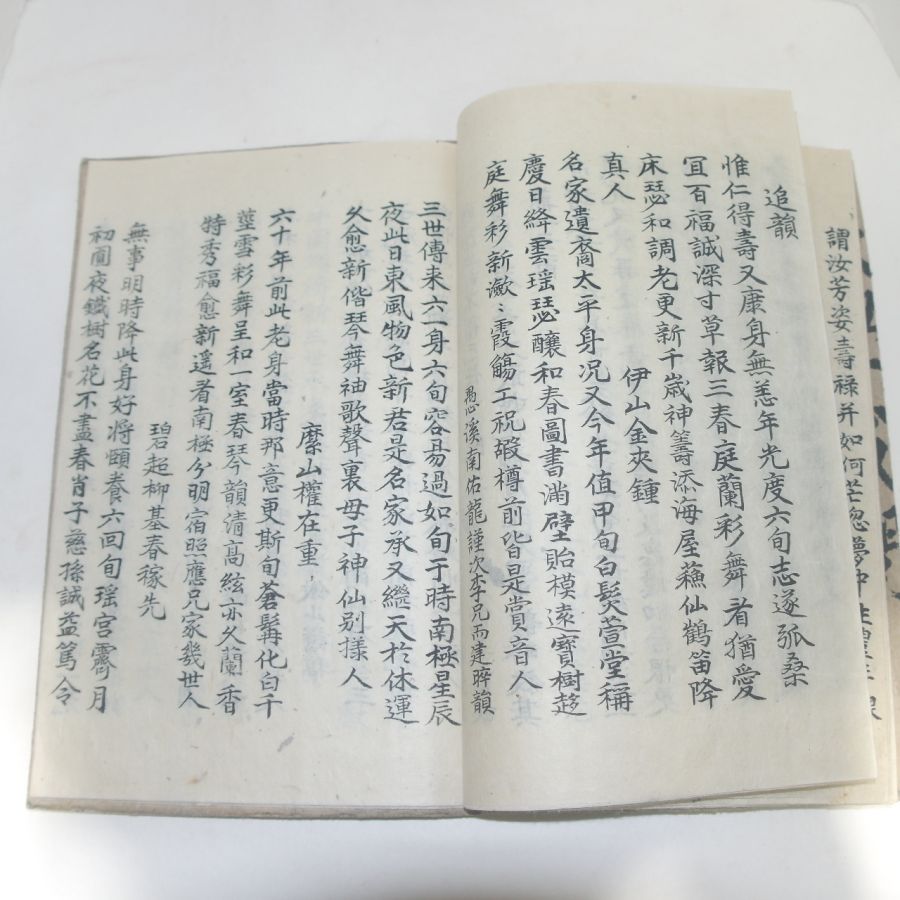 謂汝芳姿壽祿并如何茫忽夢中
追韻
惟仁得壽又康身無恙年光度六旬志遂弧桑
冝百福誠深寸草報三春庭蘭彩舞看猶愛
床瑟和調老更新千歲神籌添海屋蘓仙鶴笛降
真人
伊山金夾鍾
名家遺裔太平身况又今年值甲旬白髮萱堂稱
慶日絳雲瑶瑟釀和春圖書滿壁貽模遠寶樹趍
庭舞彩新潋〻霞觴工祝嘏樽前皆是賞音人
愚溪南佑龍謹次李兄而建晬韻
三世傳来六一身六旬容昜過如旬于時南極星辰
夜此日東風物色新君是名家承又繼天於休運
久愈新偕琴舞袖歌聲裏母子神仙别樣人
縻山權在重
六十年前此老身當時那意更斯旬蒼髯化白千
莖雪彩舞呈和一室春琴韻清高絃亦久蘭香
特秀福愈新遥看南極分明宿照應兄家幾世人
碧超柳基春稼先
無事明時降此身好将頤養六回旬瑶宮霽月
初圎夜鐵樹名花不盡春肖子慈孫誠益篤令